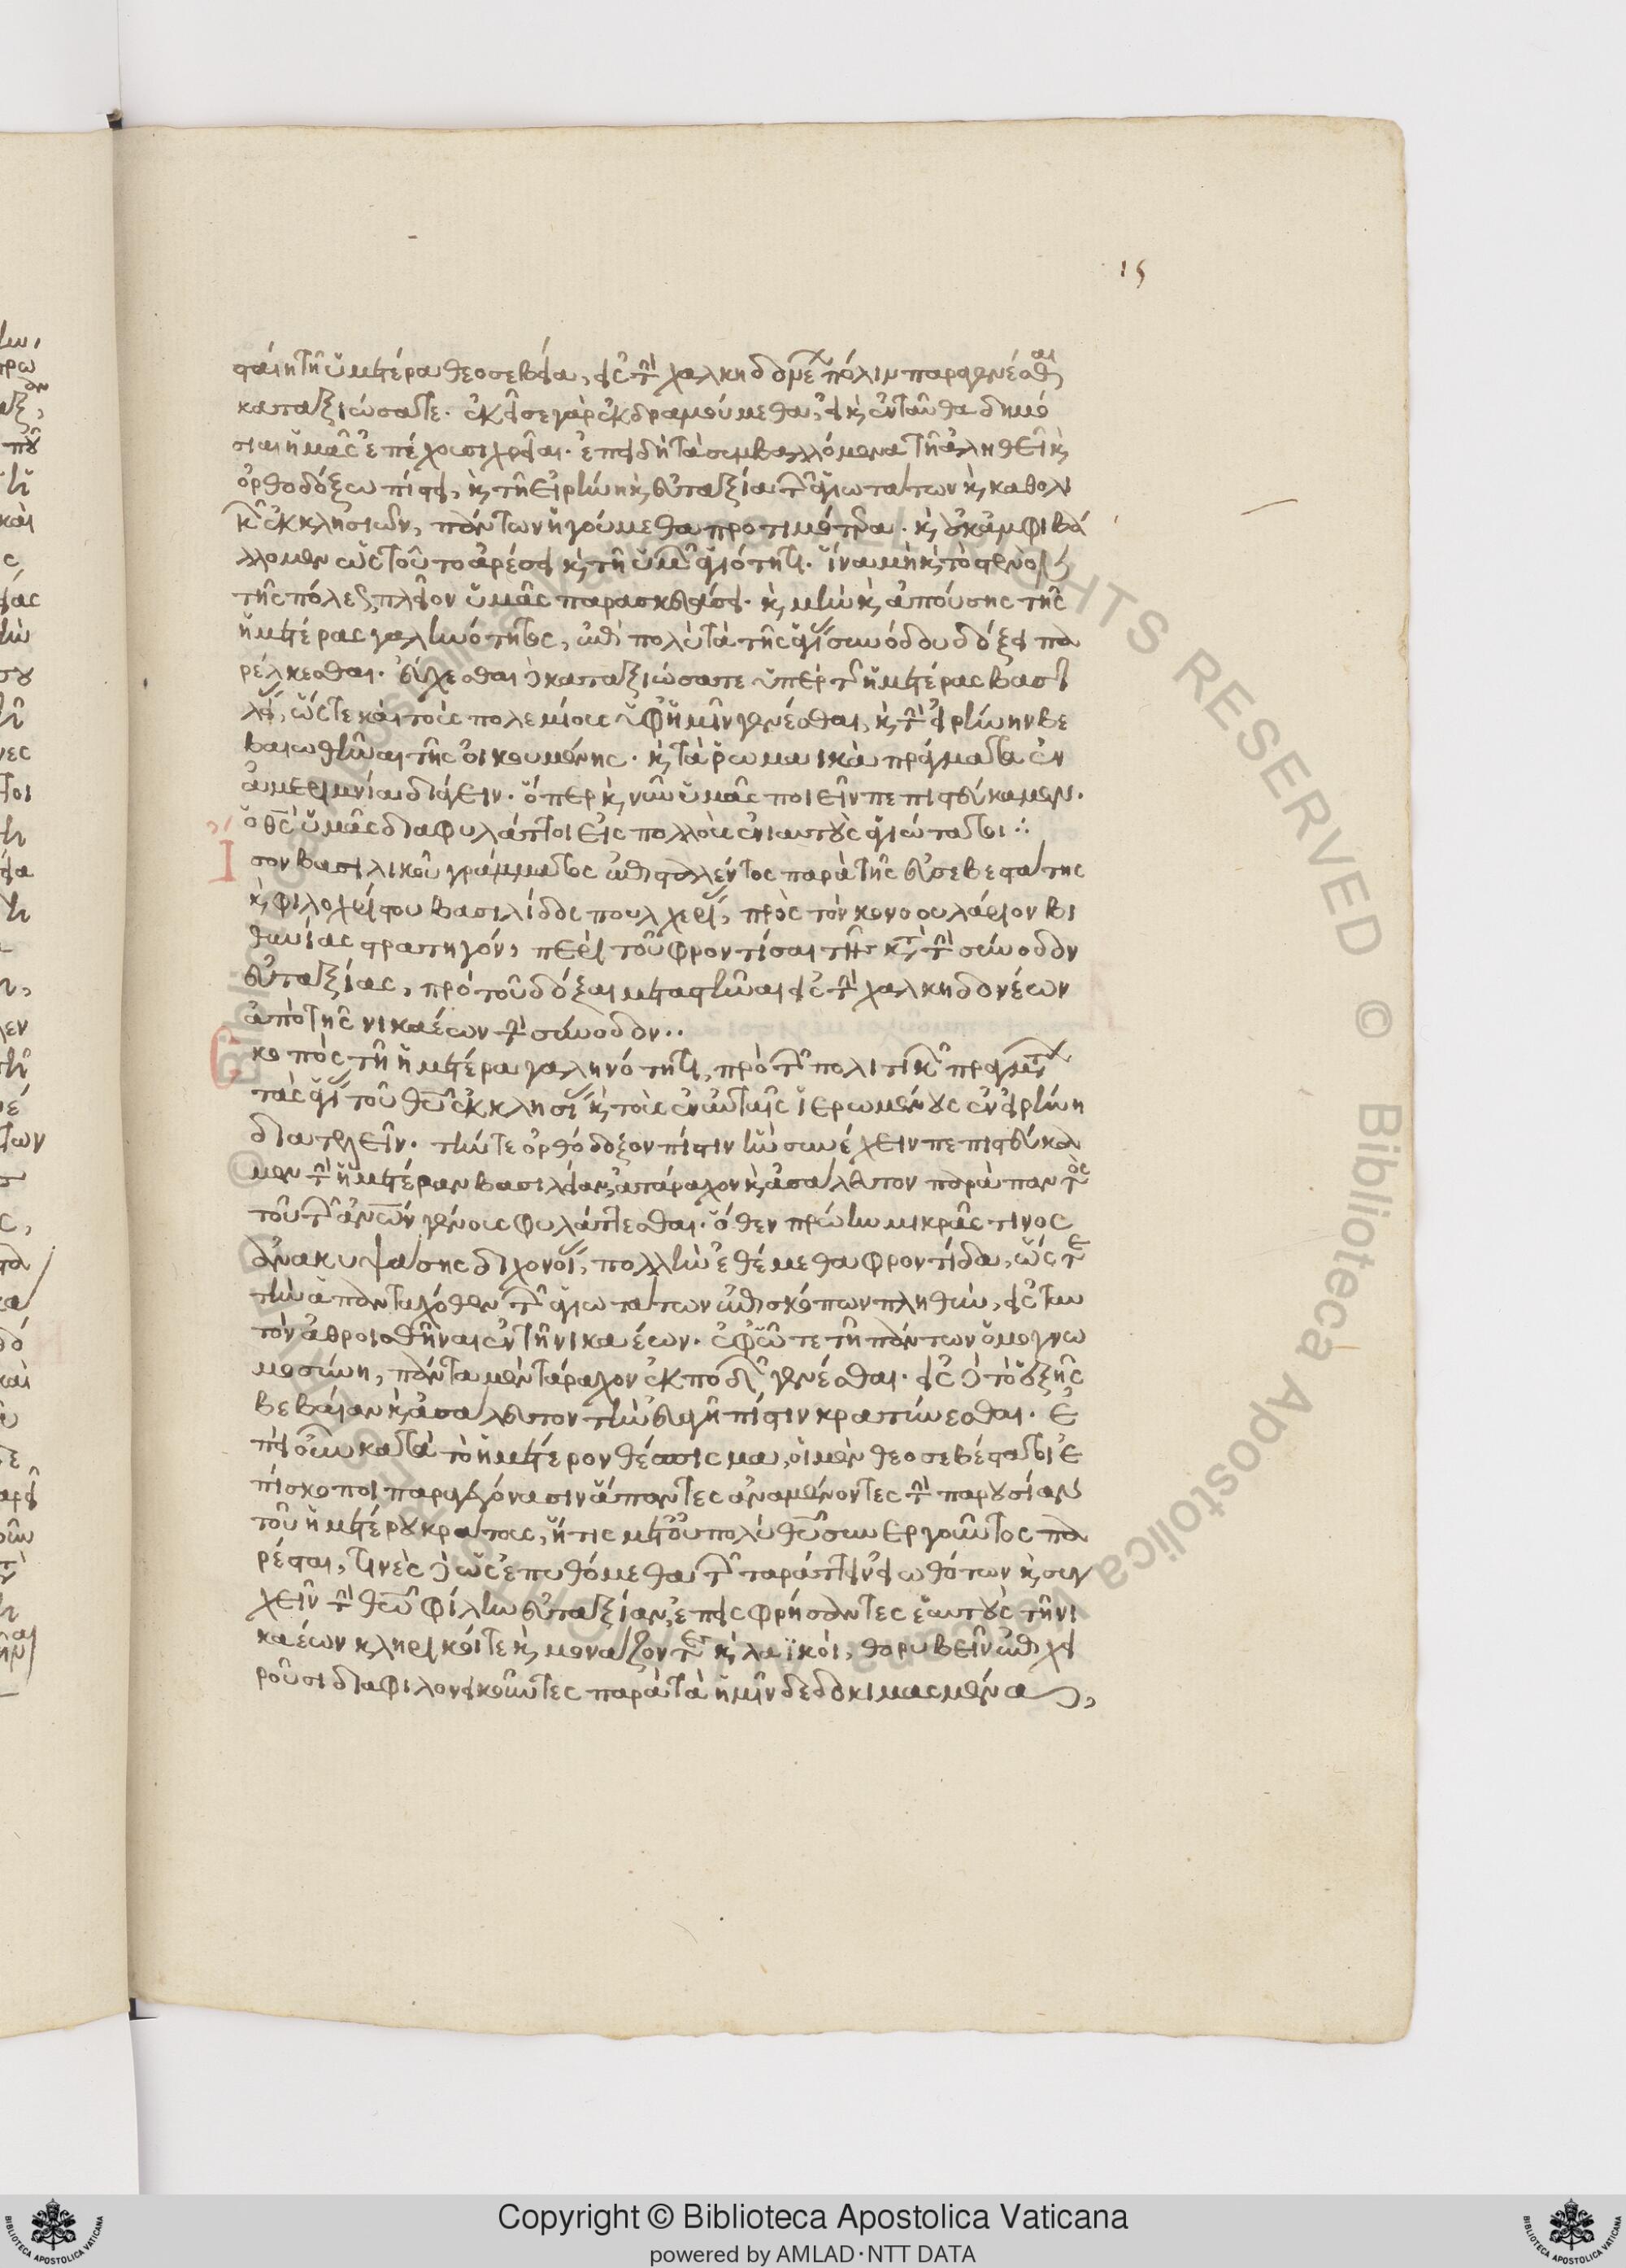 15
σταίη τῆ ὑμετέρα θεοσεβεία, εἰς τὴν χαλκηδονέων πόλιν παραγενέσθαι
καταξιώσατε. ἐκεῖσε γὰρ ἐκδραμούμεθα, εἰ καὶ ἐνταῦθα δημό
σιαι ἡμᾶς ἐπέχουσι χρεῖαι. ἐπειδὴ τὰ συμβαλλόμενα τῆ ἀληθεῖ καὶ
ὀρθοδόξω πίστει, καὶ τῆ εἰρήνη καὶ εὐταξία τῶν ἁγιωτάτων καὶ καθολι
κῶν ἐκκλησιῶν, πάντων ἡγούμεθα προτιμότερα. καὶ οὐκ ἀμφιβά
λλομεν ὡς τοῦτο ἀρέσει καὶ τῆ ὑμῶν ἁγιότητι. ἵνα μὴ καὶ τὸ στενὸν
τῆς πόλεως πλεῖον ὑμᾶς παρασκευάσει. καὶ μὴν καὶ ἀπούσης τῆς
ἡμετέρας γαληνότητος, ἐπὶ πολὺ τὰ τῆς ἁγίας συνόδου δόξει πα
ρέλκεσθαι. εὔχεσθαι δὲ καταξιώσατε ὑπὲρ τῆς ἡμετέρας βασι
λείας, ὥστε καὶ τοὺς πολεμίους ὑφ' ἡμῖν γενέσθαι, καὶ τὴν εἰρήνην βε
βαιωθῆναι τῆς οἰκουμένης. καὶ τὰ ῥωμαικὰ πράγματα ἐν
ἀμεριμνία διάγειν. ὅπερ καὶ νῦν ὑμᾶς ποιεῖν πεπιστεύκαμεν.
ὁ θς ὑμᾶς διαφυλάττοι εἰς πολλοὺς ἐνιαυτοὺς ἁγιώτατοι ∴
Ἴσον βασιλικοῦ γράμματος ἐπισταλέντος παρὰ τῆς εὐσεβεστάτης
καὶ φιλοχρίστου βασιλίδος πουλχερίας, πρὸς τὸν κονσουλάριον βι
θυνίας στρατηγόν, περὶ τοῦ φροντίσαι τῆς κατὰ τὴν σύνοδον
εὐταξίας, πρὸ τοῦ δόξαι μεταστῆναι εἰς τὴν χαλκηδονέων
ἀπὸ τῆς νικαέων τὴν σύνοδον..
Σκοπὸς τῆ ἡμετέρα γαληνότητι, πρὸ τῶν πολιτικῶν πραγμάτων
τὰς ἁγίας τοῦ θυ ἐκκλησίας καὶ τοὺς ἐν αὐταῖς ἱερωμένους ἐν εἰρήνη
διατελεῖν. τήν τε ὀρθόδοξον πίστιν ἣν συνέχειν πεπιστεύκα
μεν τὴν ἡμετέραν βασιλείαν, ἀτάραχον καὶ ἀσάλευτον παρὰ παντὸς
τοῦ τῶν ἀνων γένους φυλάττεσθαι. ὅθεν πρώην μικρᾶς τινος
ἀνακυψάσης διχονοίας, πολλὴν ἐθέμεθα φροντίδα, ὥστε
τὴν ἁπανταχόθεν τῶν ἁγιωτάτων ἐπισκόπων πληθύν, εἰς ταυ
τὸν ἀθροισθῆναι ἐν τῆ νικαέων. ἐφ' ᾧ τε τῆ πάντων ὁμογνω
μοσύνη, πάντα μὲν τάραχον ἐκποδὼν γενέσθαι. εἰς δὲ τὸ ἑξῆς
βεβαίαν καὶ ἀσάλευτον τὴν εὐαγῆ πίστιν κρατύνεσθαι. ἐ
πεὶ οὖν κατὰ τὸ ἡμέτερον θέσπισμα, οἱ μὲν θεοσεβέστατοι ἐ
πίσκοποι παραγεγόνασιν ἅπαντες ἀναμένοντες τὴν παρουσίαν
τοῦ ἡμετέρου κράτους, ἥτις μετ' οὐ πολὺ θυ συνεργοῦντος πα
ρέσται, τινὲς δὲ ὡς ἐπυθόμεθα τῶν ταράττειν εἰωθότων καὶ συγ
χεῖν τὴν θεῷ φίλην εὐταξίαν, ἐπεισφρήσαντες ἑαυτοὺς τῆ νι
καέων κληρικοί τε καὶ μονάζοντες καὶ λαϊκοί, θορυβεῖν ἐπιχει
ροῦσι διαφιλονεικοῦντες παρὰ τὰ ἡμῖν δεδοκιμασμένα,
Copyright © Biblioteca Apostolica Vaticana
powered by AMLAD·NTT DATA